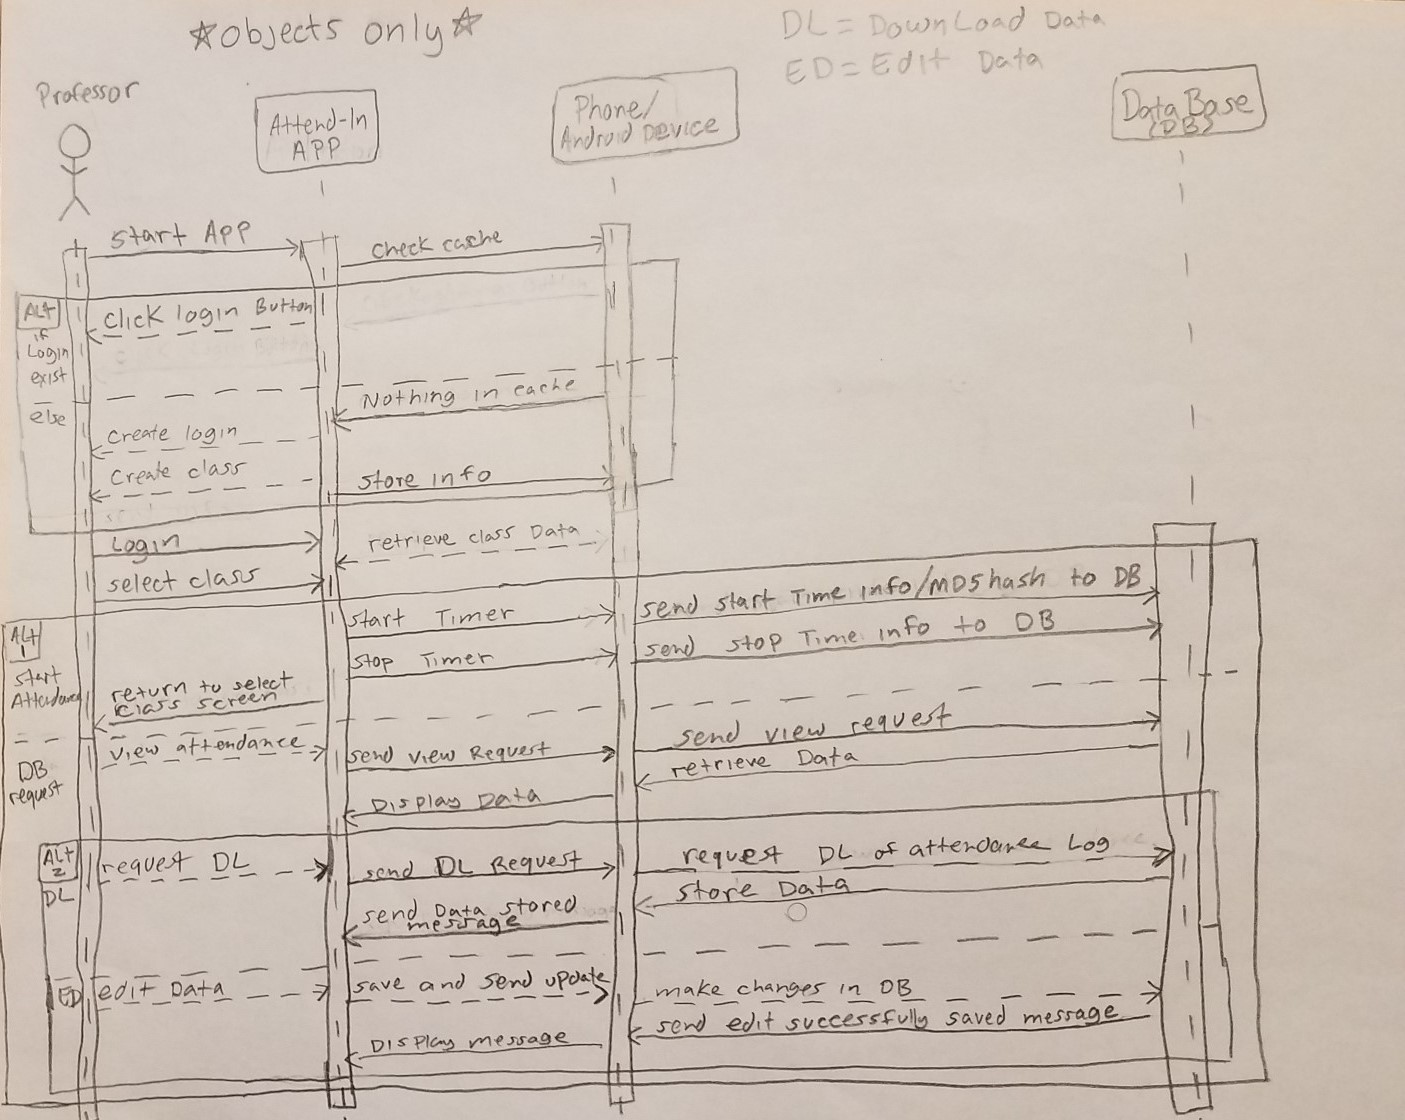 ☆objects only☆
DL = DownLoad Data
ED = Edit Data
Professor
Attend-In
APP
Phone/
Android Device
Data Base
(DB)
start APP
check cache
ALt
if
Login
exist
click login Button
else
Nothing in cache
create login
create class
store info
Login
retrieve class Data
select class
ALt
1
start
Attendance
start Timer
send start Time info/MD5hash to DB
stop Timer
send stop Time info to DB
return to select
class screen
DB
request
view attendance
send view Request
send view request
retrieve Data
Display Data
ALt
2
DL
request DL
send DL Request
request DL of attendance Log
store Data
send Data stored
message
ED
edit Data
save and send update
make changes in DB
send edit successfully saved message
Display message